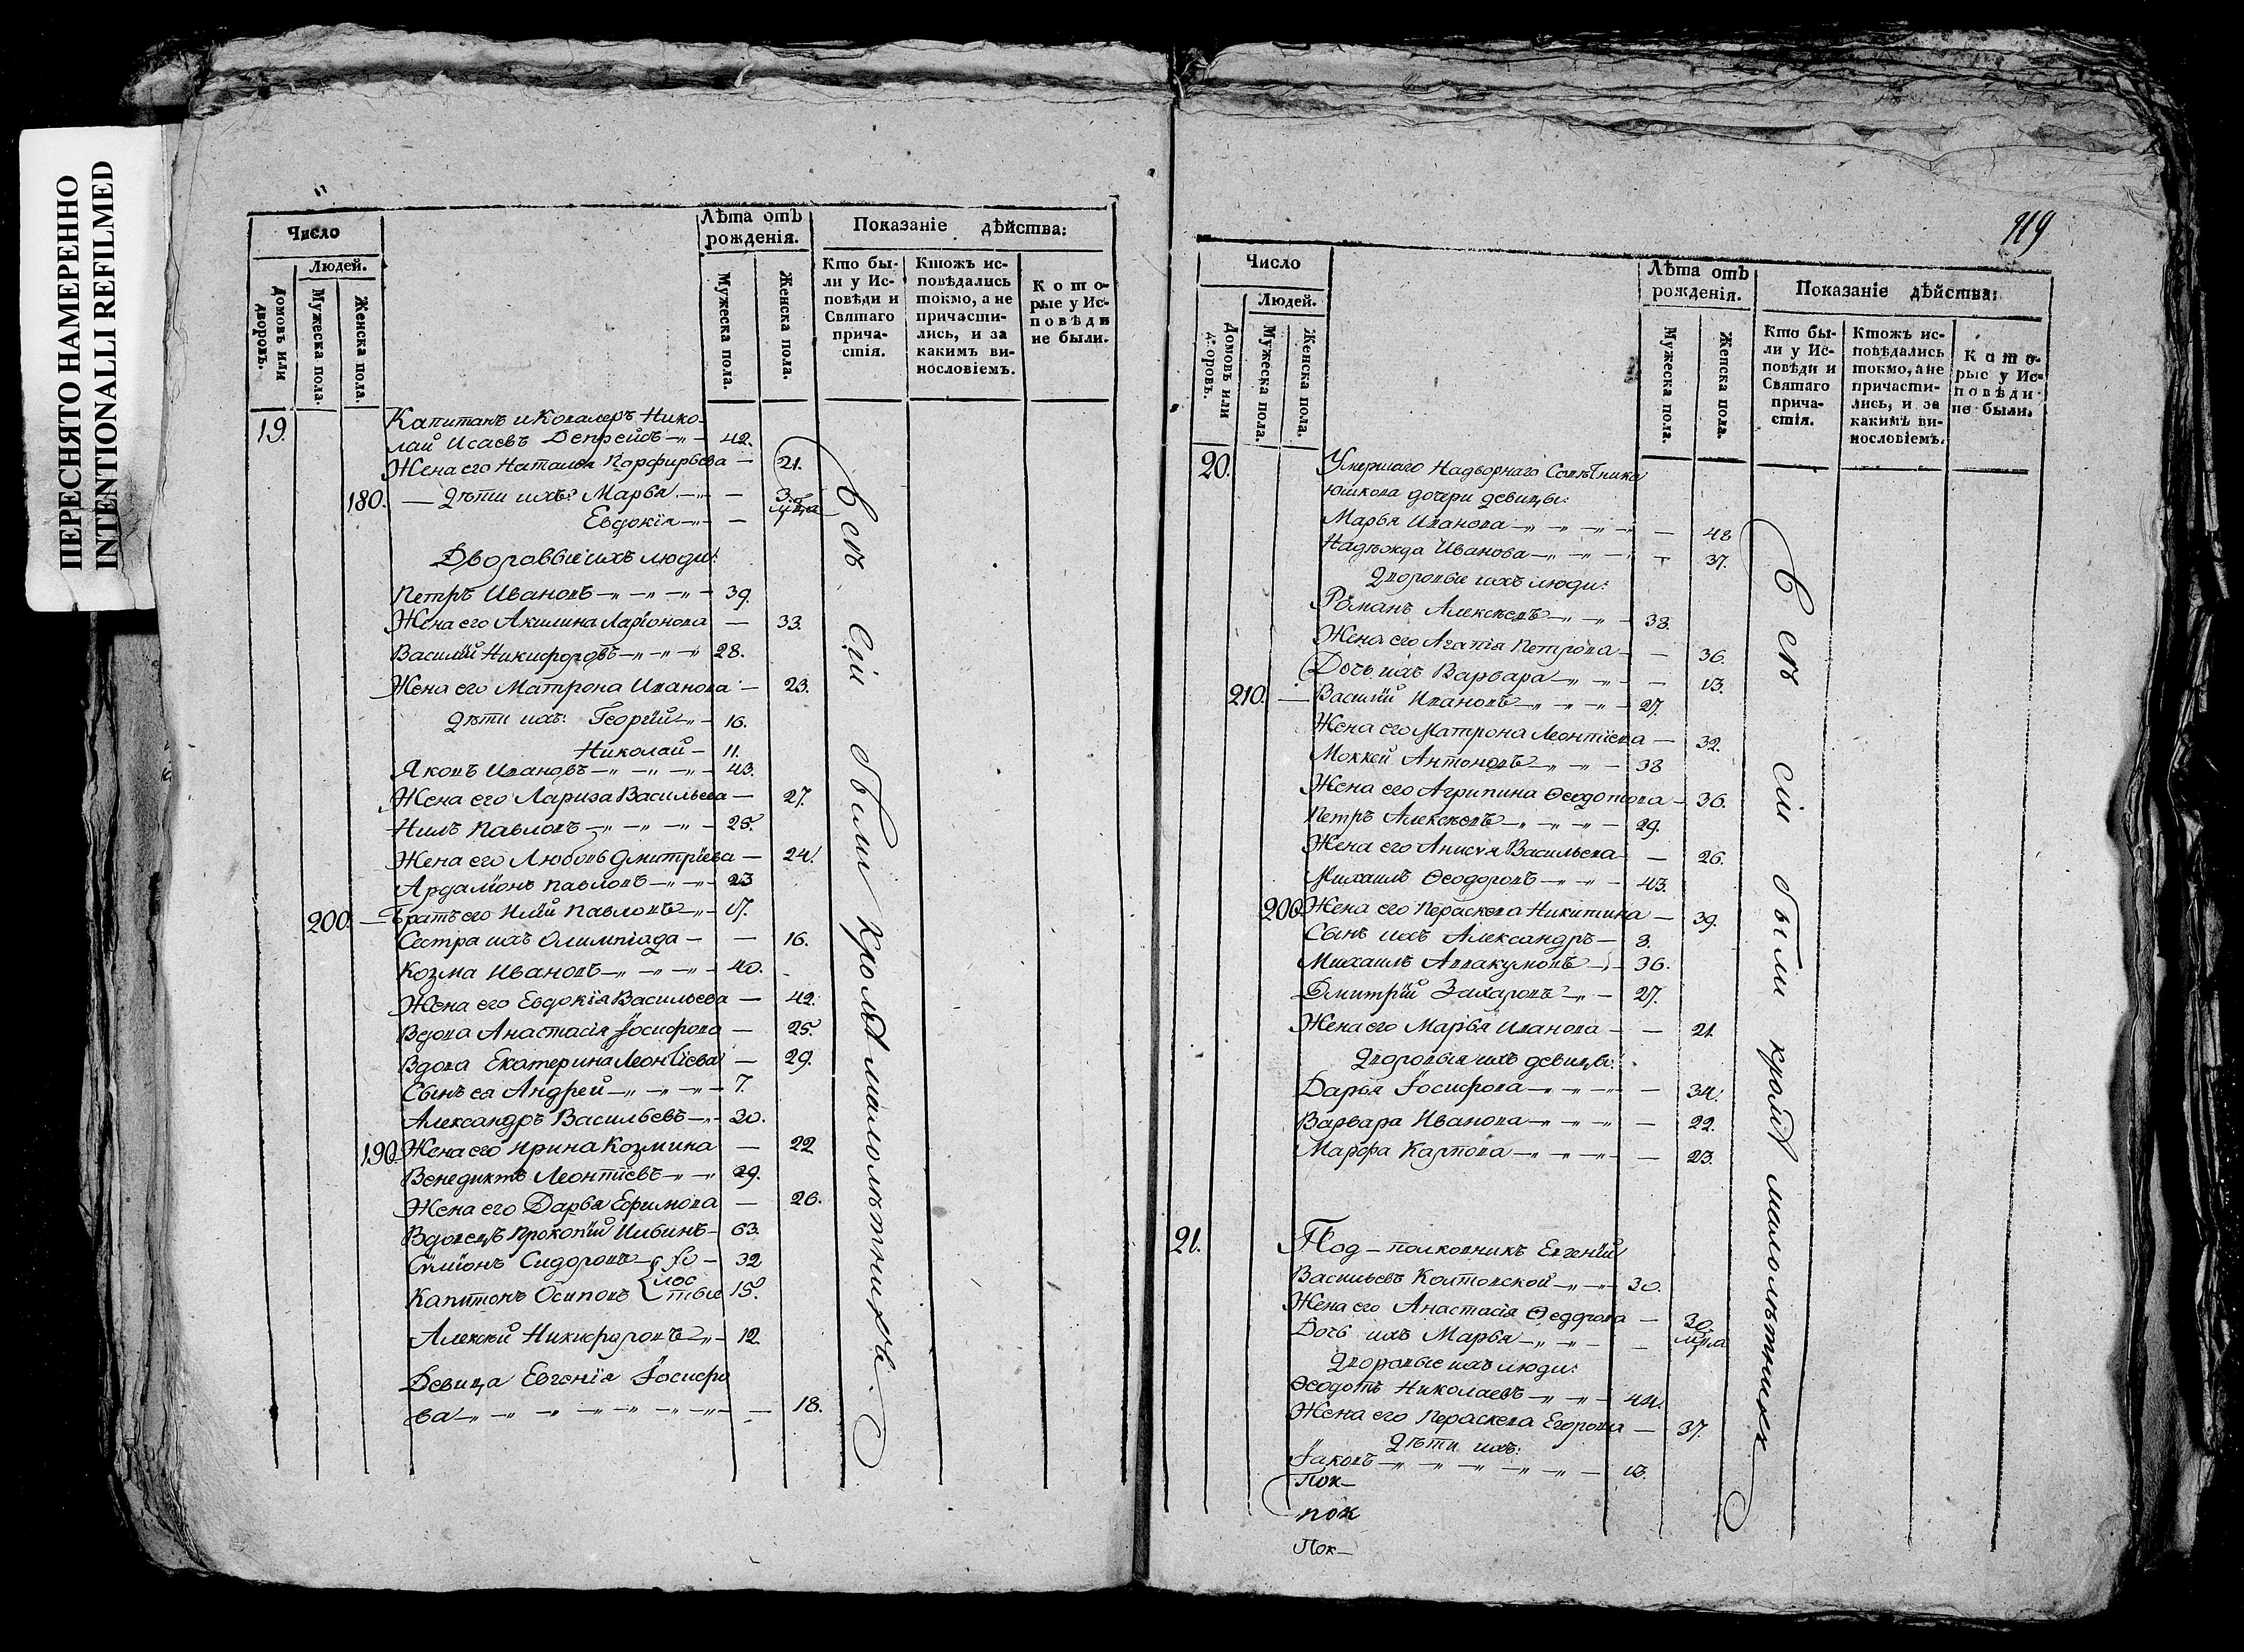 ПЕРЕСНЯТО НАМЕРЕННО
INTENTIONALLI REFILMED
Число
Людей.
Домовъ или дворовъ.
Мужеска пола.
Женска пола.
Лѣта отъ рожденія.
Мужеска пола.
Женска пола.
Показаніе дѣйства:
Кто были у Исповѣди и Святаго причастія.
Ктожъ исповѣдались токмо, а не причастились, и за какимъ винословіемъ.
Которые у Исповѣди не были.
19. Капитанъ и Кавалеръ Нико-
лай Исаевъ Депрейсъ 42.
Жена его Наталья Порфирьева — 21.
180. — Дѣти ихъ: Марья — 3.
Евдокія —
Дворовые ихъ люди:
Петръ Ивановъ 39.
Жена его Акилина Ларіонова — 33.
Василій Никифоровъ 28.
Жена его Матрона Иванова — 23.
Дѣти ихъ: Георгій 16.
Николай — 11.
Яковъ Ивановъ 43.
Жена его Лариса Васильева — 27.
Нилъ Павловъ 25.
Жена его Любовь Дмитріева — 24.
Ардаліонъ Павловъ 23
200. — Братъ его Илій Павловъ 17.
Сестра ихъ Олимпіада — — 16.
Козма Ивановъ 40.
Жена его Евдокія Васильева — 42.
Вдова Анастасія Іосифова — 25
Вдова Екатерина Леонтіева — 29.
Сынъ ея Андрей 7.
Александръ Васильевъ 30.
190. Жена его Ирина Козмина — 22
Венедиктъ Леонтіевъ 29.
Жена его Дарья Ефимова — 26.
Вдовецъ Прокопій Ильинъ 63.
Сѵміонъ Сидоровъ — хо — 32
лос
Капитонъ Осиповъ тые 15.
Алексѣй Никифоровъ 12.
Девица Евгенія Іосифо
ва — 18.
Всѣ сіи были кромѣ малолѣтнихъ.
119
Число
Людей.
Домовъ или дворовъ.
Мужеска пола.
Женска пола.
Лѣта отъ рожденія.
Мужеска пола.
Женска пола.
Показаніе дѣйства:
Кто были у Исповѣди и Святаго причастія.
Ктожъ исповѣдались токмо, а не причастились, и за какимъ винословіемъ.
Которые у Исповѣди не были.
20. Умершаго Надворнаго Совѣтника
Юшкова дочери девицы:
Марья Иванова — 48
Надежда Иванова — 37.
Дворовые ихъ люди:
Романъ Алексѣевъ 38.
Жена его Агапія Петрова — 36.
Дочь ихъ Варвара — 13.
210. — Василій Ивановъ 27.
Жена его Матрона Леонтіева — 32.
Моккей Антоновъ 38
Жена его Агрипина Ѳеодотова — 36.
Петръ Алексѣевъ 29.
Жена его Анисія Васильева — 26.
Михаилъ Ѳеодоровъ 43.
200. Жена его Параскева Никитина — 39.
Сынъ ихъ Александръ — 3.
Михаилъ Аввакумовъ 36.
Дмитрій Захаровъ 27.
Жена его Марья Иванова — 21.
Дворовыя ихъ девицы:
Дарья Іосифова — 34.
Варвара Иванова — 22.
Марфа Карпова — 23.
21. Под-полковникъ Евгеній
Васильевъ Колтовской 30.
Жена его Анастасія Ѳедорова — 30.
Дочь ихъ Марья —
Дворовые ихъ люди:
Ѳеодотъ Николаевъ 44.
Жена его Параскева Егорова — 37.
Дѣти ихъ:
Іаковъ 13.
Пок—
пок
Пок—
Всѣ сіи были кромѣ малолѣтнихъ